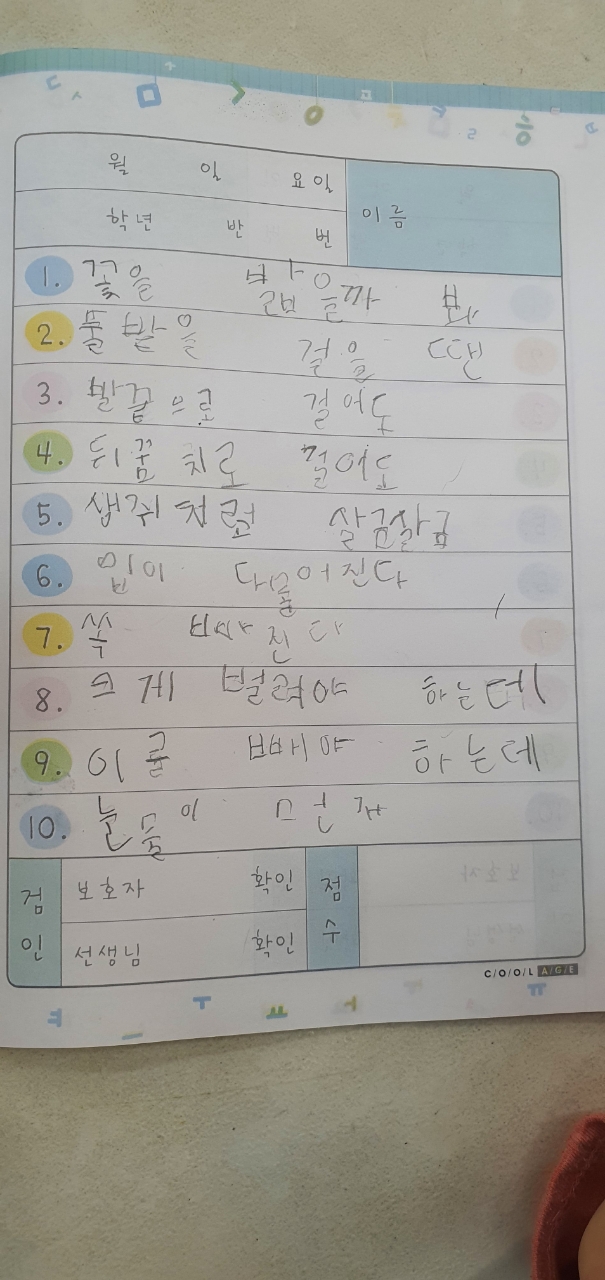 월 일 요일
이름
학년 반 번
1. 꽃을 밟을까 봐
2. 풀밭을 걸을 땐
3. 발끝으로 걸어도
4. 뒤꿈치로 걸어도
5. 생쥐처럼 살금살금
6. 입이 다물어진다
7. 쏙 빠진다
8. 크게 벌려야 하는데
9. 이를 빼야 하는데
10. 눈물이
검인
보호자 확인
점수
선생님 확인
C/O/O/L A/G/E